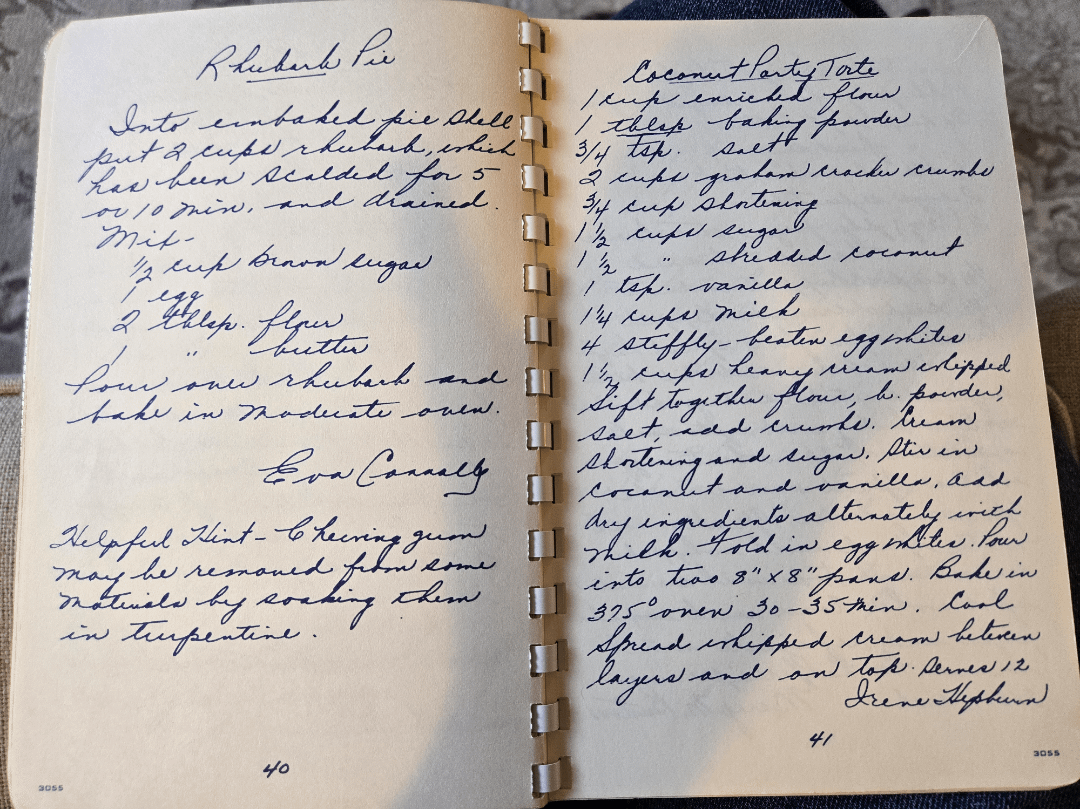 Rhubarb Pie
Into unbaked pie shell
put 2 cups rhubarb, which
has been scalded for 5
or 10 min, and drained.
Mix-
1/2 cup brown sugar
1 egg
2 tblsp. flour
1 " butter
Pour over rhubarb and
bake in moderate oven.
Eva Connally
Helpful Hint - Chewing gum
may be removed from some
materials by soaking them
in turpentine.
40
3055
Coconut Party Torte
1 cup enriched flour
1 tblsp baking powder
3/4 tsp. salt
2 cups graham cracker crumbs
3/4 cup shortening
1 1/2 cups sugar
1 1/2 " shredded coconut
1 tsp. vanilla
1 1/4 cups milk
4 stiffly-beaten egg whites
1 1/2 cups heavy cream whipped
Sift together flour, b. powder,
salt, add crumbs. Cream
shortening and sugar. Stir in
coconut and vanilla. Add
dry ingredients alternately with
milk. Fold in egg whites. Pour
into two 8" x 8" pans. Bake in
375° oven 30-35 min. Cool
Spread whipped cream between
layers and on top. Serves 12
Irene Hepburn
41
3055